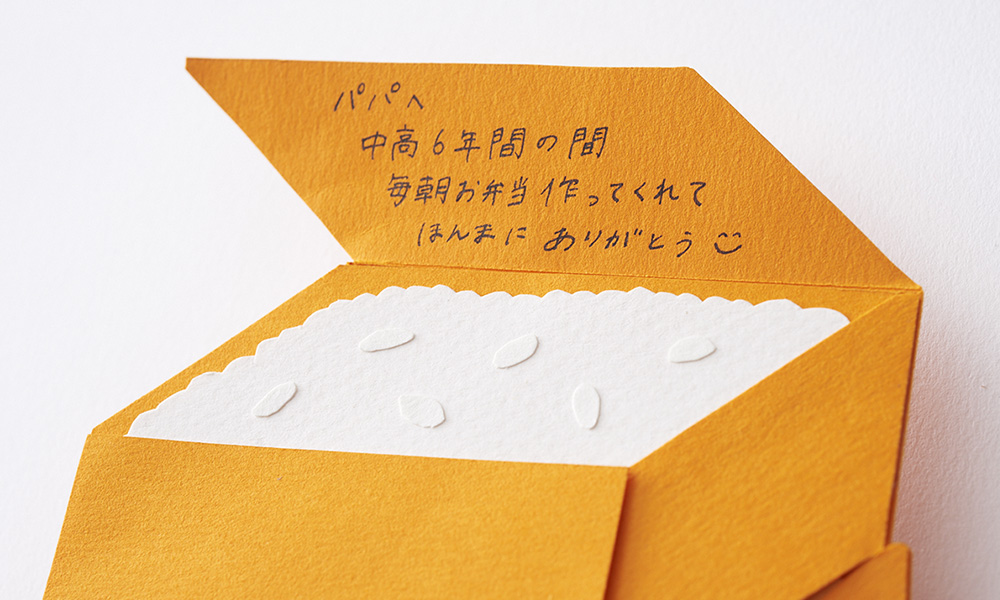 パパへ
中高6年間の間
毎朝お弁当作ってくれて
ほんまに ありがとう